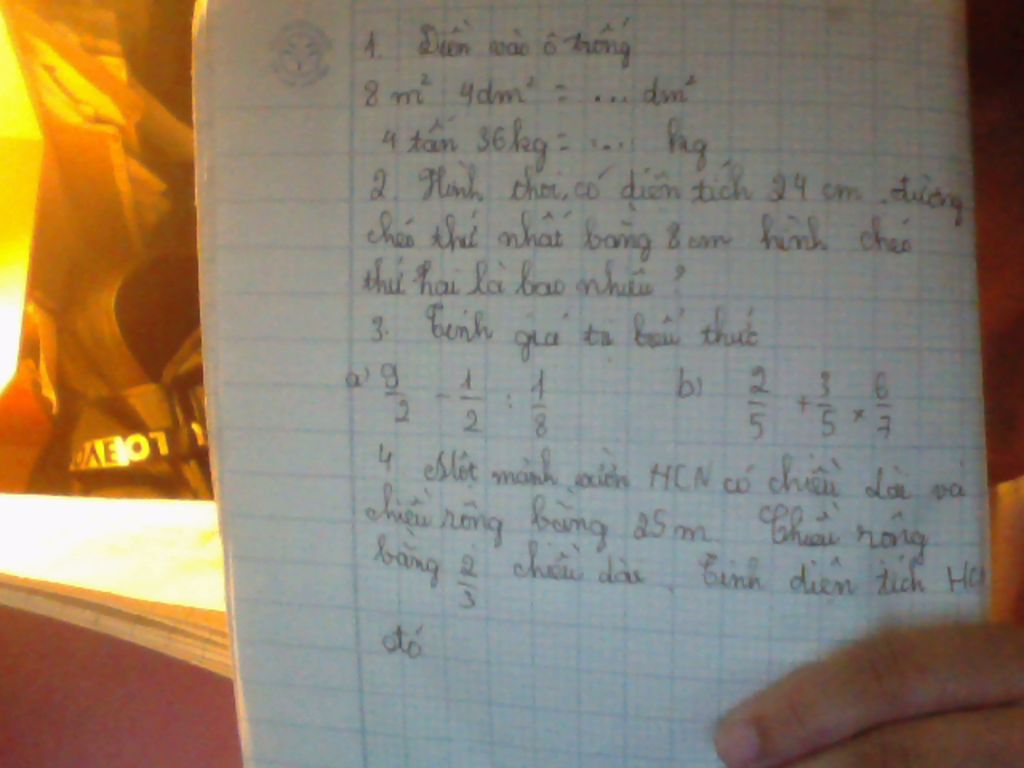 1. Điền vào ô trống
8 m² 4dm² = ... dm²
4 tấn 36kg = .... kg
2. Hình thoi có diên tích 24 cm. đường
chéo thứ nhất bằng 8cm hình chéo
thứ hai là bao nhiêu?
3. Tính giá trị biểu thức
a) 9/2 - 1/2 : 1/8 b) 2/5 + 3/5 × 6/7
4 Một mảnh vườn HCN có chiều dài và
chiều rông bằng 25 m. Chiều rông
bằng 2/3 chiều dài. Tính diên tích HCN
đó